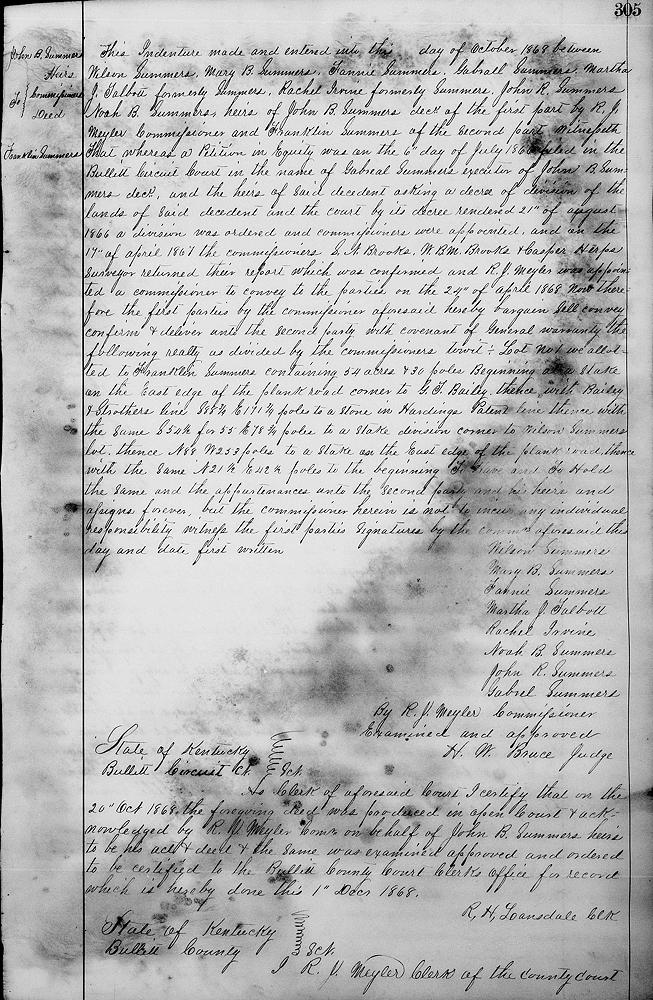 305
John B. Summers
Heirs
To } Commissioners
Deed
Franklin Summers
This Indenture made and entered into this day of October 1868 between
Wilson Summers, Mary B. Summers, Fannie Summers, Gabrall Summers, Martha
J. Talbott formerly Summers, Rachel Irvine formerly Summers, John R. Summers
Noah B. Summers, heirs of John B. Summers decd of the first part by R. J.
Meyler Commissioner and Franklin Summers of the Second part, Witnesseth
That whereas a Petition in Equity was on the 6" day of July 186 filed in the
Bullitt Circuit Court in the name of Gabreal Summers executor of John B. Sum-
mers decd, and the heirs of said decedent asking a decree of division of the
lands of said decedent and the court by its decree rendered 21" of august
1866 a division was ordered and commissioners were appointed, and on the
17" of april 1867 the commissioners S. N. Brooks, W. B. M. Brooks & Casper Herps
Surveyor returned their report which was confirmed and R. J. Meyler was appoin-
ted a commissioner to convey to the parties on the 24" of april 1868 Now there-
fore the first parties by the commissioner aforesaid hereby bargain Sell convey
confirm & deliver unto the Second party with covenant of General warranty the
following realty as divided by the commissioners towit: Lot No allot-
ted to Franklin Summers containing 54 acres & 30 poles Beginning at a Stake
on the East edge of the plank road corner to G. T. Bailey, thence with Bailey
& Strothers line S88¾ E171¼ poles to a Stone in Hardings Patent line thence with
the Same S54½ for 55 E78¾ poles to a Stake division corner to Wilson Summers
lot, thence N88 W253 poles to a Stake on the East edge of the plank road, thence
with the Same N21½ E42½ poles to the beginning To Have and To Hold
the Same and the appurtenances unto the Second party and his heirs and
assigns forever, but the commissioner herein is not to incur any individual
responsibility witness the first parties Signatures by the commr aforesaid this
day and date first written
Wilson Summers
Mary B. Summers
Fannie Summers
Martha J. Talbott
Rachel Irvine
Noah B. Summers
John R. Summers
Gabriel Summers
By R. J. Meyler Commissioner
Examined and approved
H. W. Bruce Judge
State of Kentucky
Bullitt Circuit Ct. } Sct.
As Clerk of aforesaid Court I certify that on the
20" Oct 1868 the foregoing deed was produced in open Court & ack-
nowledged by R. J. Meyler Comr on behalf of John B. Summers heirs
to be his act & deed & the Same was examined approved and ordered
to be certified to the Bullitt County Court Clerks office for record
which is hereby done this 1" Decr 1868.
R. H. Loansdale Clk
State of Kentucky
Bullitt County } Sct.
I R. J. Meyler Clerk of the county court